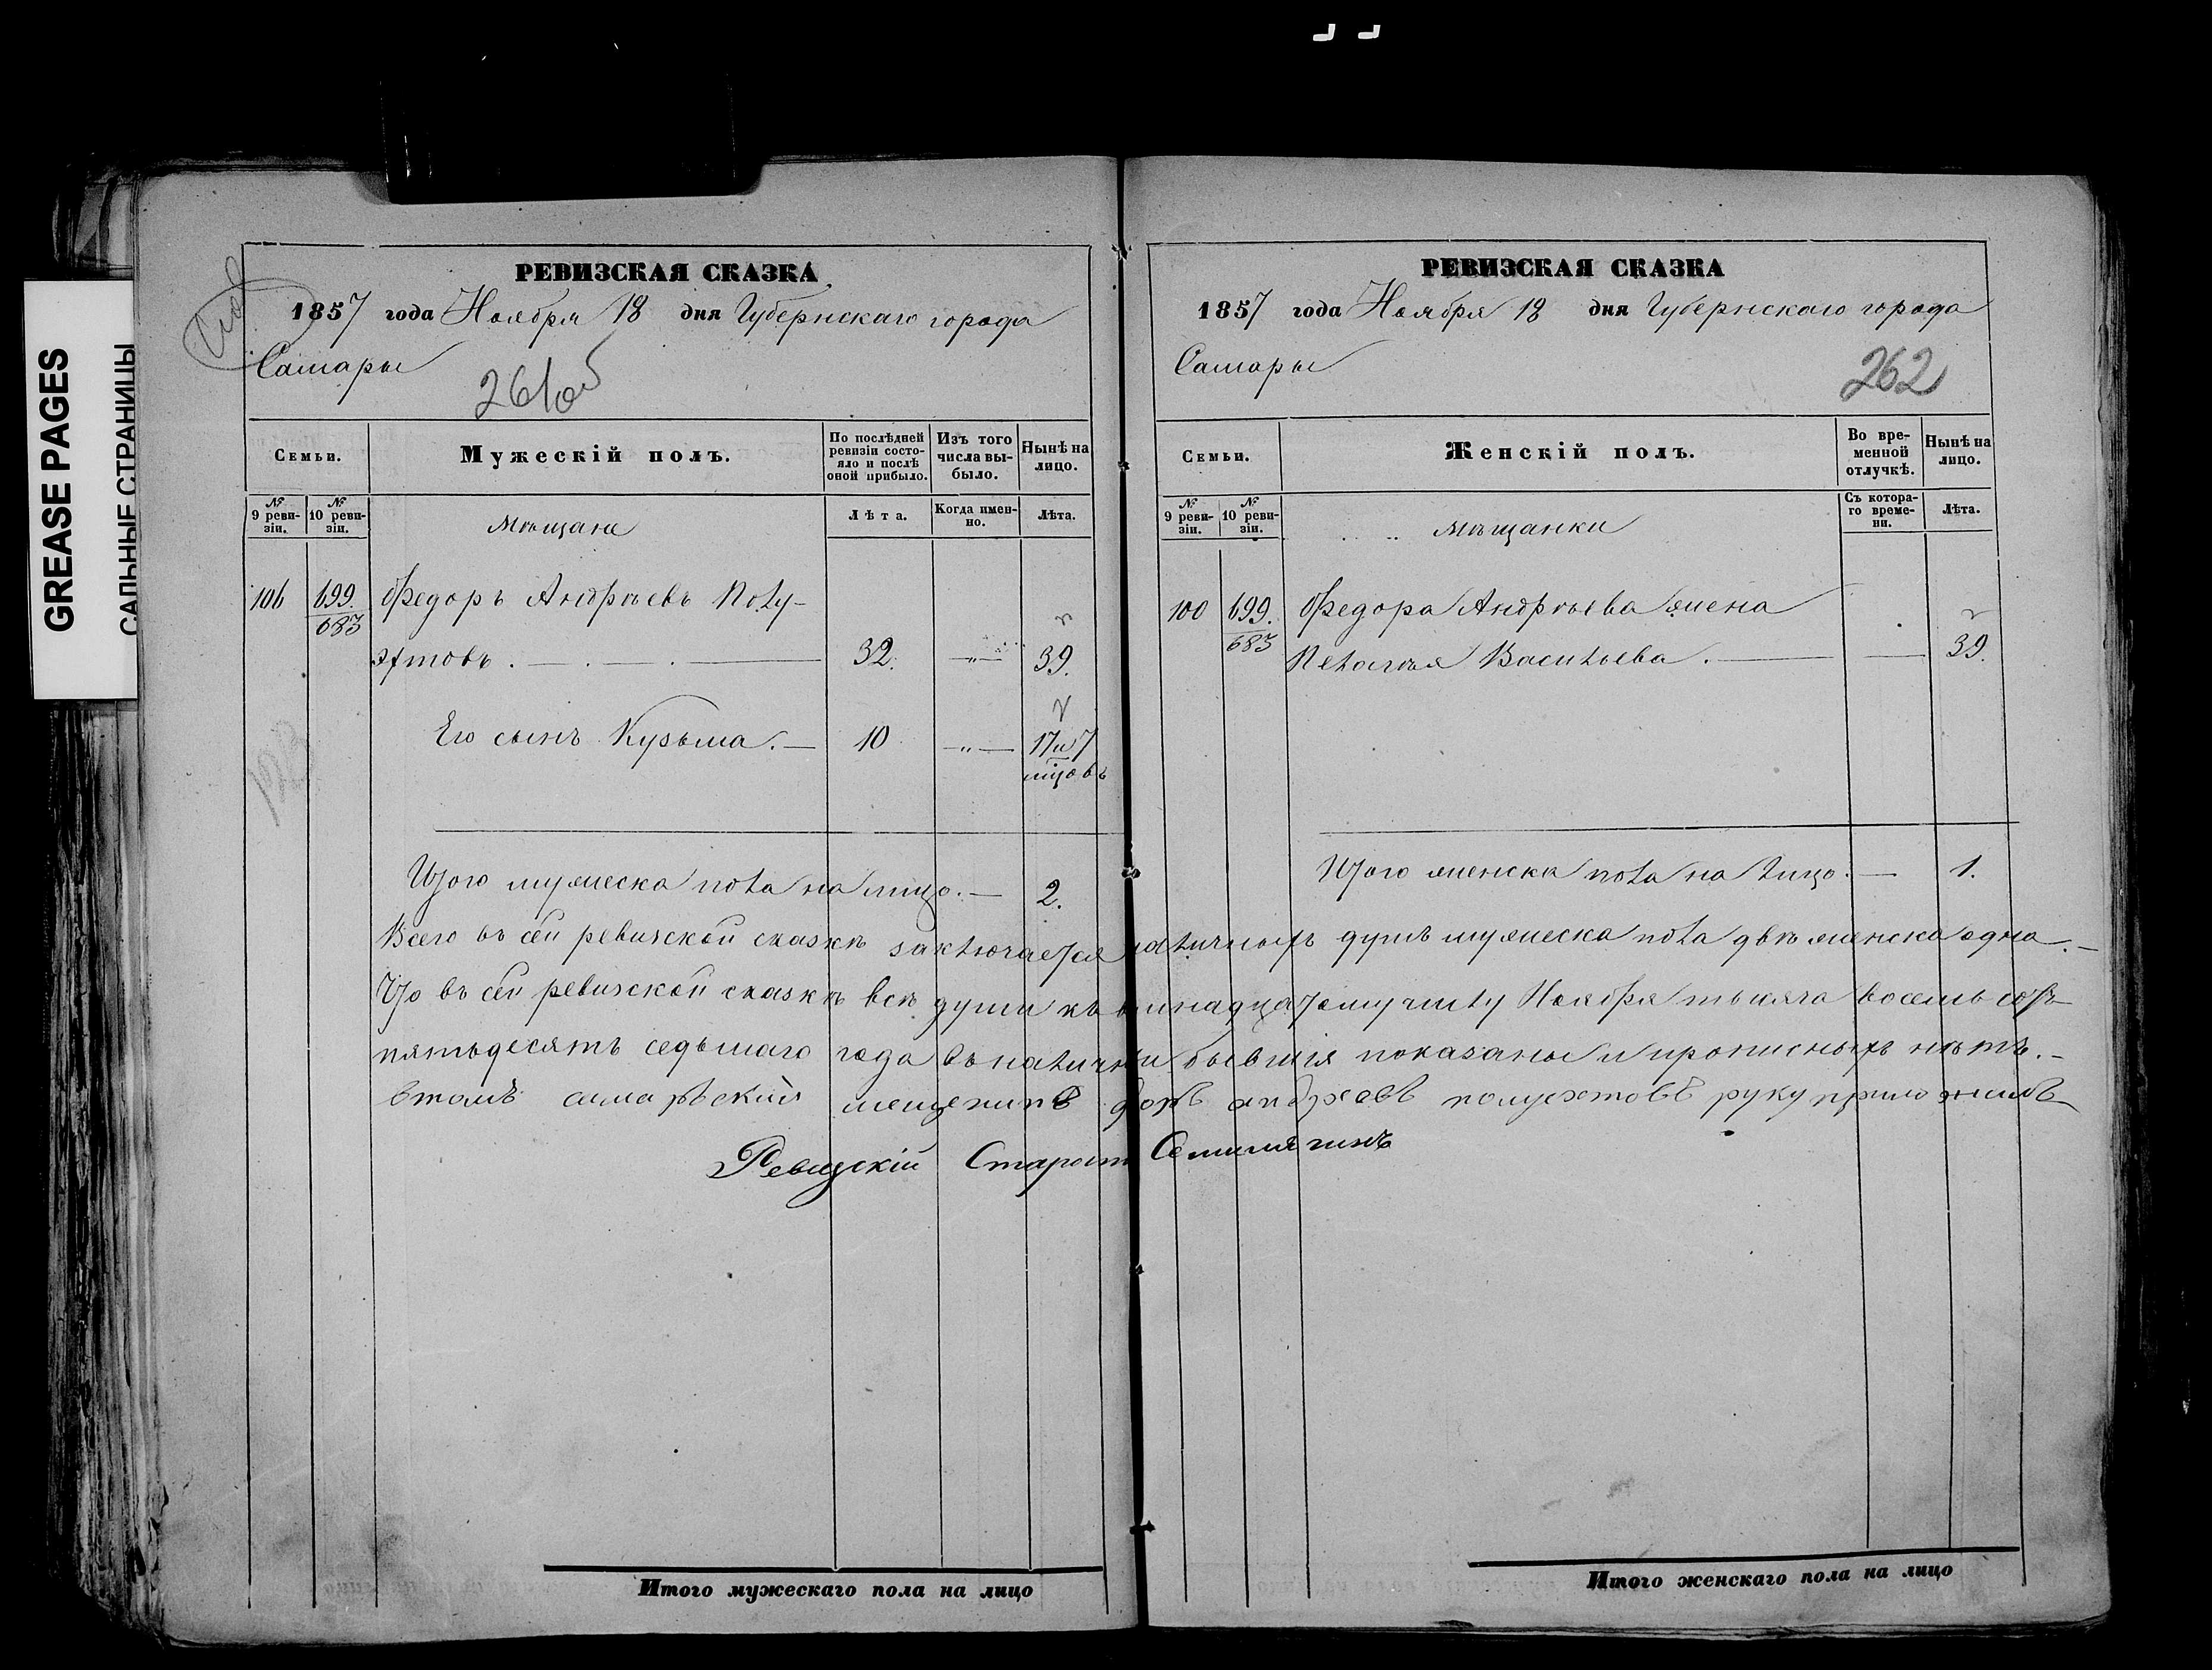 GREASE PAGES
САЛЬНЫЕ СТРАНИЦЫ
РЕВИЗСКАЯ СКАЗКА
1857 года Ноября 18 дня Губернскаго города
Самары
261об
Семьи.
Мужескій полъ.
По послѣдней ревизіи состояло и послѣ оной прибыло.
Изъ того числа выбыло.
Нынѣ на лицо.
№ 9 ревизіи.
№ 10 ревизіи.
Мѣщане
Лѣта.
Когда именно.
Лѣта.
106 699. Федоръ Андрѣевъ Полу-
683
эктовъ. 32. 39.
Его сынъ Кузьма. 10 17 и 7
мцовъ
Итого мужеска пола на лицо. 2.
РЕВИЗСКАЯ СКАЗКА
1857 года Ноября 18 дня Губернскаго города
Самары
262
Семьи.
Женскій полъ.
Во временной отлучкѣ.
Нынѣ на лицо.
№ 9 ревизіи.
№ 10 ревизіи.
Мѣщанки
Съ котораго времени.
Лѣта.
100 699. Федора Андрѣева жена
683 Пелагѣя Васильева. 39.
Итого женска пола на лицо. 1.
Всего въ сей ревизской сказкѣ заключается наличныхъ душъ мужеска пола двѣ женска одна.
Что въ сей ревизской сказкѣ всѣ души къ числу Ноября тысяча восемь сотъ
пятьдесятъ седьмаго года въ наличии бывшія показаны и прописныхъ нѣтъ.
втомъ самарьский мещенинъ андреевъ полуехтовъ руку приложилъ
Ревизскій Староста
Итого мужескаго пола на лицо
Итого женскаго пола на лицо